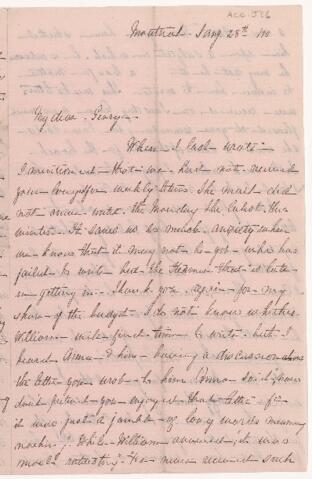 ACC. 526
Montreal Jany 28th
My dear George
When I last wrote
I mention'd that we had not received
your weekly letters. The mail did
not arrive until the Monday the latest this
winter. It saves us so much anxiety when
we know that it may not be you who has
failed to write but the steamer that is late
in getting in. Thank you again for my
share of the budget. I do not know whether
William will find time to write but I
heard Anna & him having a discussion about
the letter you wrote to him Anna said
you enjoyed that letter for
it was just a jumble of long words meaning
nothing. While William it was
most never received such